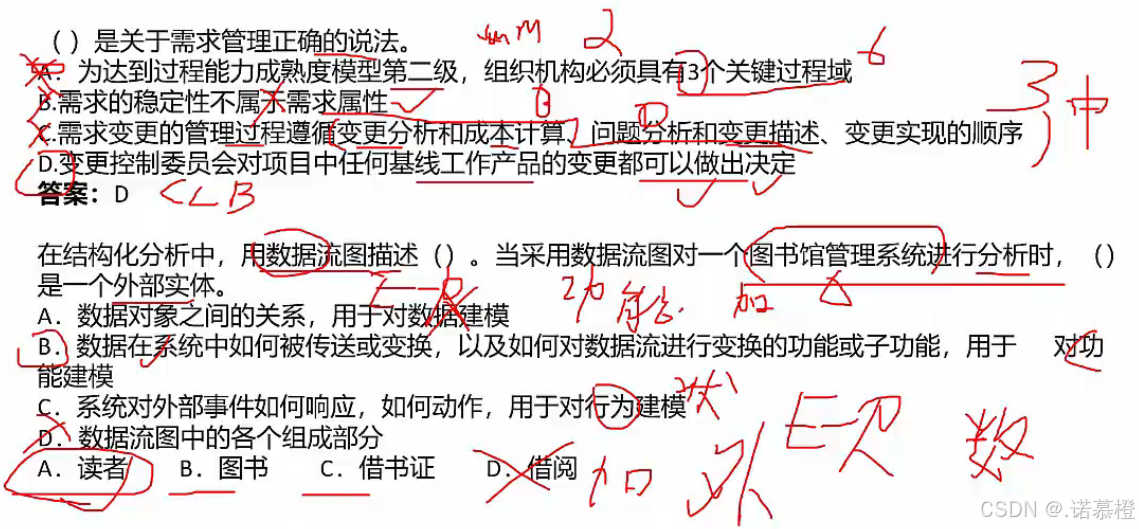 ()是关于需求管理正确的说法。
cmm 2
A. 为达到过程能力成熟度模型第二级，组织机构必须具有3个关键过程域 6
B.需求的稳定性不属于需求属性
B D 3 中
C.需求变更的管理过程遵循变更分析和成本计算、问题分析和变更描述、变更实现的顺序
D.变更控制委员会对项目中任何基线工作产品的变更都可以做出决定
答案：D
在结构化分析中，用数据流图描述（）。当采用数据流图对一个图书馆管理系统进行分析时，（）
是一个外部实体。
E-R 功能
A．数据对象之间的关系，用于对数据建模
B．数据在系统中如何被传送或变换，以及如何对数据流进行变换的功能或子功能，用于 对功
能建模
C．系统对外部事件如何响应，如何动作，用于对行为建模 状
D．数据流图中的各个组成部分
E-R 数
A．读者 B．图书 C．借书证 D．借阅
CSDN @.诺慕橙